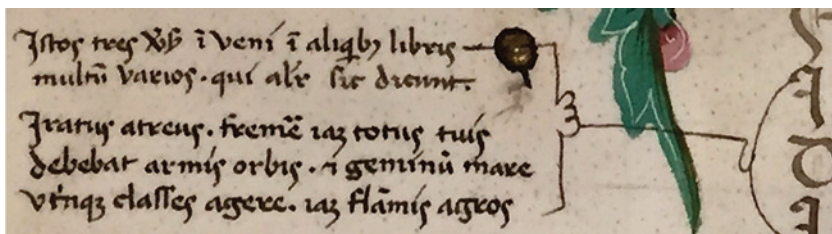 Istos tres v̄s̄ īvenī ī aliqbꝫ libris
multū varios . qui alr̄ sic dicunt.
Iratus atreus . fremē iaꝫ totus tuis
debebat armis orbis . ⁊ geminū mare
vt'nqꝫ classes agere . iaꝫ flāmis agros